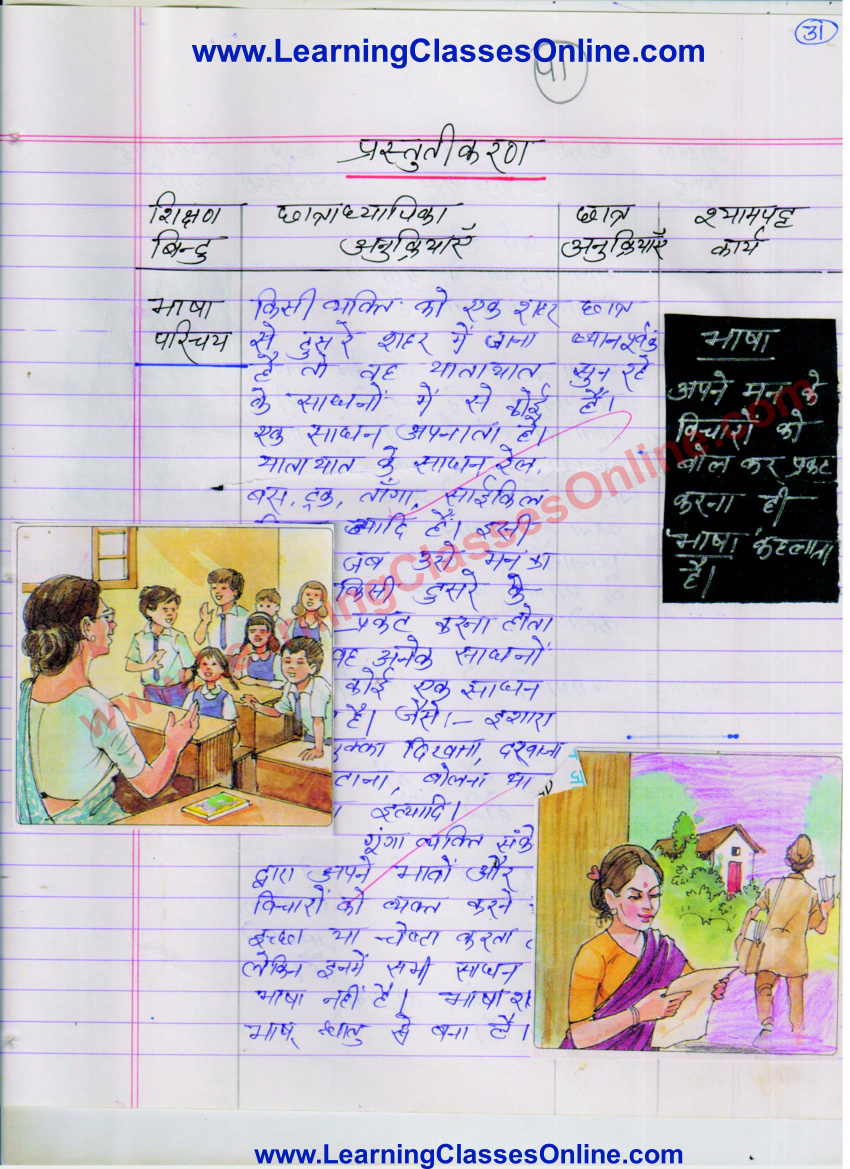 www.LearningClassesOnline.com
31
प्रस्तुतीकरण
शिक्षण बिन्दु
छात्राध्यापिका अनुक्रियाएँ
छात्र अनुक्रियाएँ
श्यामपट्ट कार्य
भाषा
परिचय
किसी व्यक्ति को एक शहर
से दुसरे शहर में जाना
है तो वह यातायात
के साधनों में से कोई
एक साधन अपनाता है।
यातायात के साधन रेल,
बस, ट्रक, ताँगा, साईकिल
त्यादि हैं। इसी
जब उसे मन का
किसी दुसरे के
प्रकट करना होता
वह अनेक साधनों
कोई एक साधन
है। जैसे:- इशारा
क्का दिखाना, दरवाजा
टाना, बोलना या
इत्यादि।
गूंगा व्यक्ति संके
द्वारा अपने भावों और
विचारों को व्यक्त करने
इच्छा या चेष्टा करता
लेकिन इनमें सभी साधन
भाषा नहीं है। भाषा श
भाष् धातु से बना है।
छात्र
ध्यानपूर्वक
सुन रहे
हैं।
भाषा
अपने मन के
विचारों को
बोल कर प्रकट
करना ही
'भाषा' कहलाता
है।
www.LearningClassesOnline.com
www.LearningClassesOnline.com